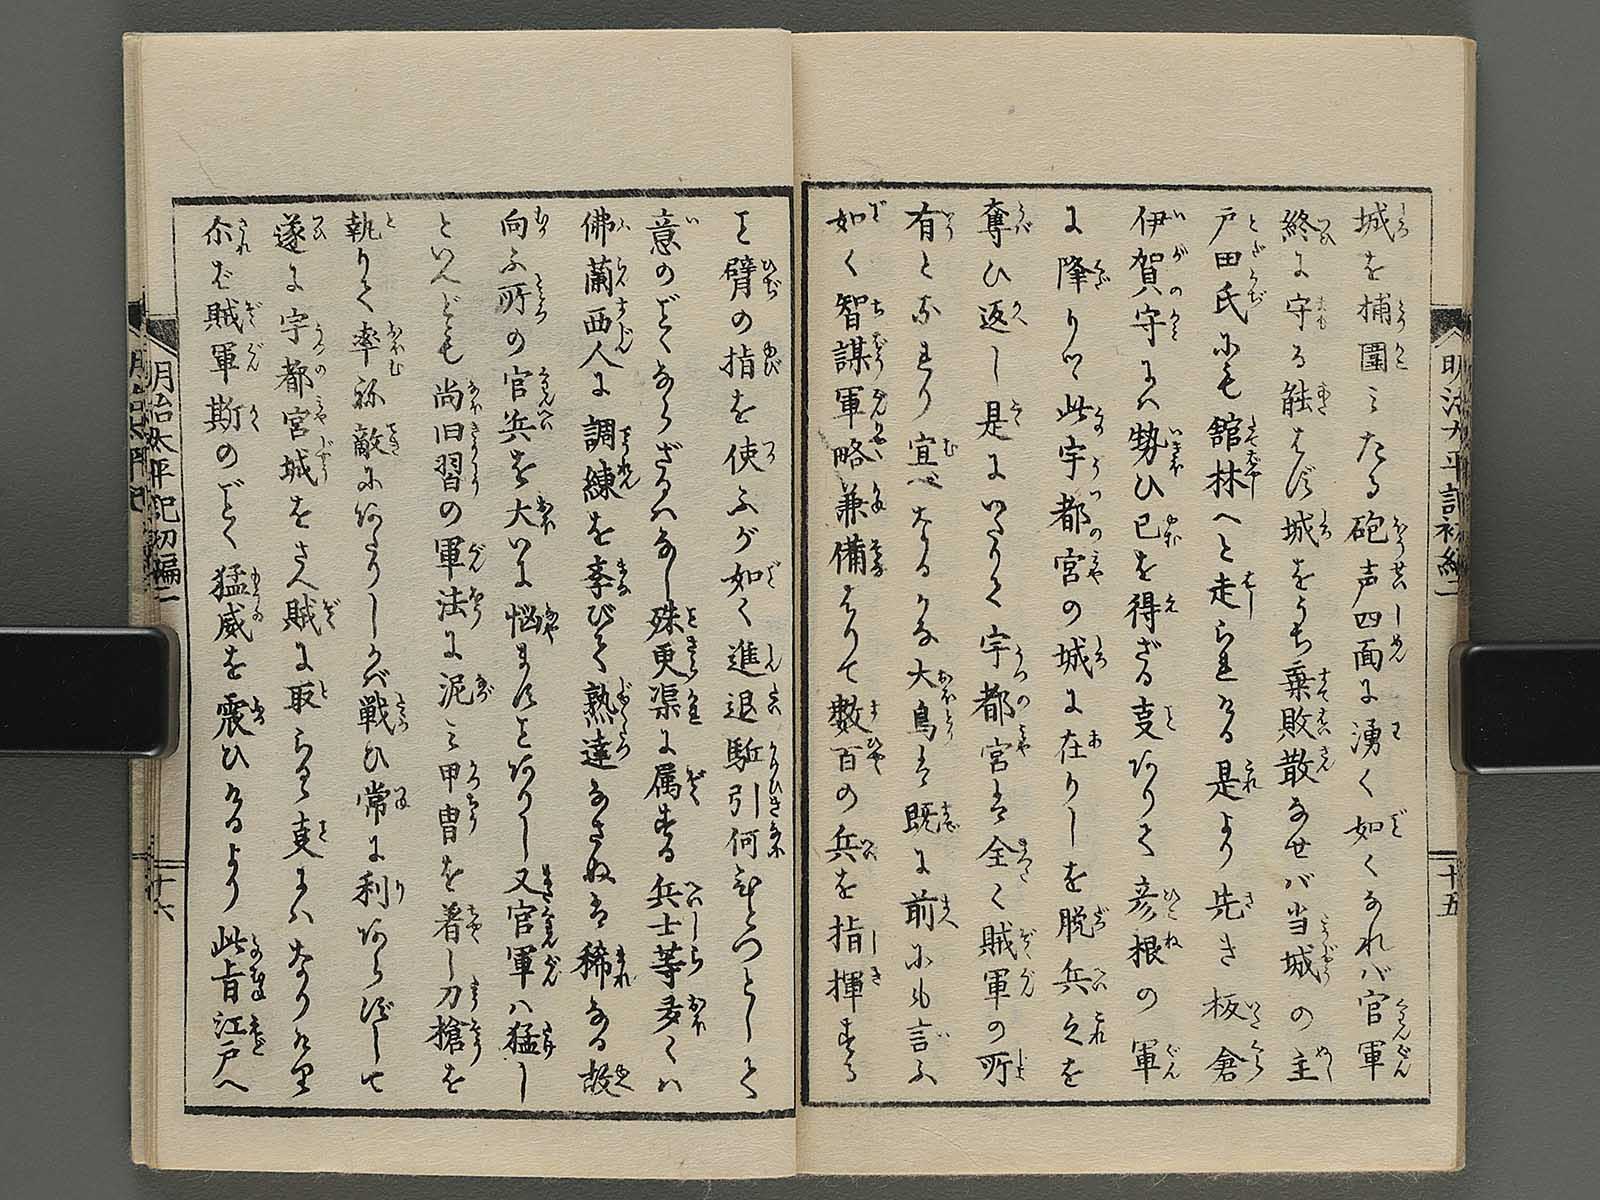 城を捕圍ミたる砲声四面に湧く如くなれバ官軍
終に守る能はず城をうち棄敗散なせバ当城の主
戸田氏にも舘林へと走られける是より先き板倉
伊賀守にハ勢ひ已を得ざる事ありて彦根の軍
に降りツヽ此宇都宮の城に在りしを脱兵之を
奪ひ返し是にいたりて宇都宮は全く賊軍の所
有となれり宜べなるかな大鳥は既に前にも言ふ
如く智謀軍略兼備はりて数百の兵を指揮する
と臂の指を使ふが如く進退駈引何ひとつとして
意のごとくならざるハなし殊更渠に属する兵士等多くハ
佛蘭西人に調練を学びて熟達なさぬは稀なる故
向ふ所の官兵を大いに悩ますことありし又官軍ハ猛し
といへども尚旧習の軍法に泥ミ甲冑を着し刀槍を
執りて率ね敵にあたりしかバ戦ひ常に利あらずして
遂に宇都宮城をさへ賊に取らるゝ事にハなりけり
尓ば賊軍斯のごとく猛威を震ひけるより此旨江戸へ
明治太平記初編二
十五
明治太平記初編二
十六